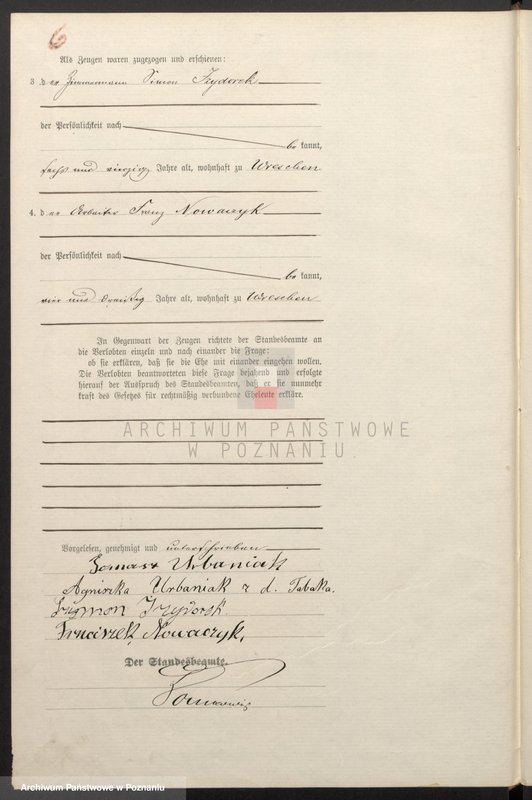 6
Als Zeugen waren zugezogen und erschienen:
3. der Zimmermann Simon Izydorek
der Persönlichkeit nach
be kannt,
sechs und vierzig Jahre alt, wohnhaft zu Wreschen
4. der Arbeiter Franz Nowaczyk
der Persönlichkeit nach
be kannt,
vier und dreißig Jahre alt, wohnhaft zu Wreschen
In Gegenwart der Zeugen richtete der Standesbeamte an
die Verlobten einzeln und nach einander die Frage:
ob sie erklären, daß sie die Ehe mit einander eingehen wollen.
Die Verlobten beantworteten diese Frage bejahend und erfolgte
hierauf der Ausspruch des Standesbeamten, daß er sie nunmehr
kraft des Gesetzes für rechtmäßig verbundene Eheleute erkläre.
ARCHIWUM PAŃSTWOWE
W POZNANIU
Vorgelesen, genehmigt und unterschrieben
Tomasz Urbaniak
Agnieszka Urbaniak z d. Tabaka.
Szymon Izydorek
Franciszek Nowaczyk.
Der Standesbeamte.
Archiwum Państwowe w Poznaniu